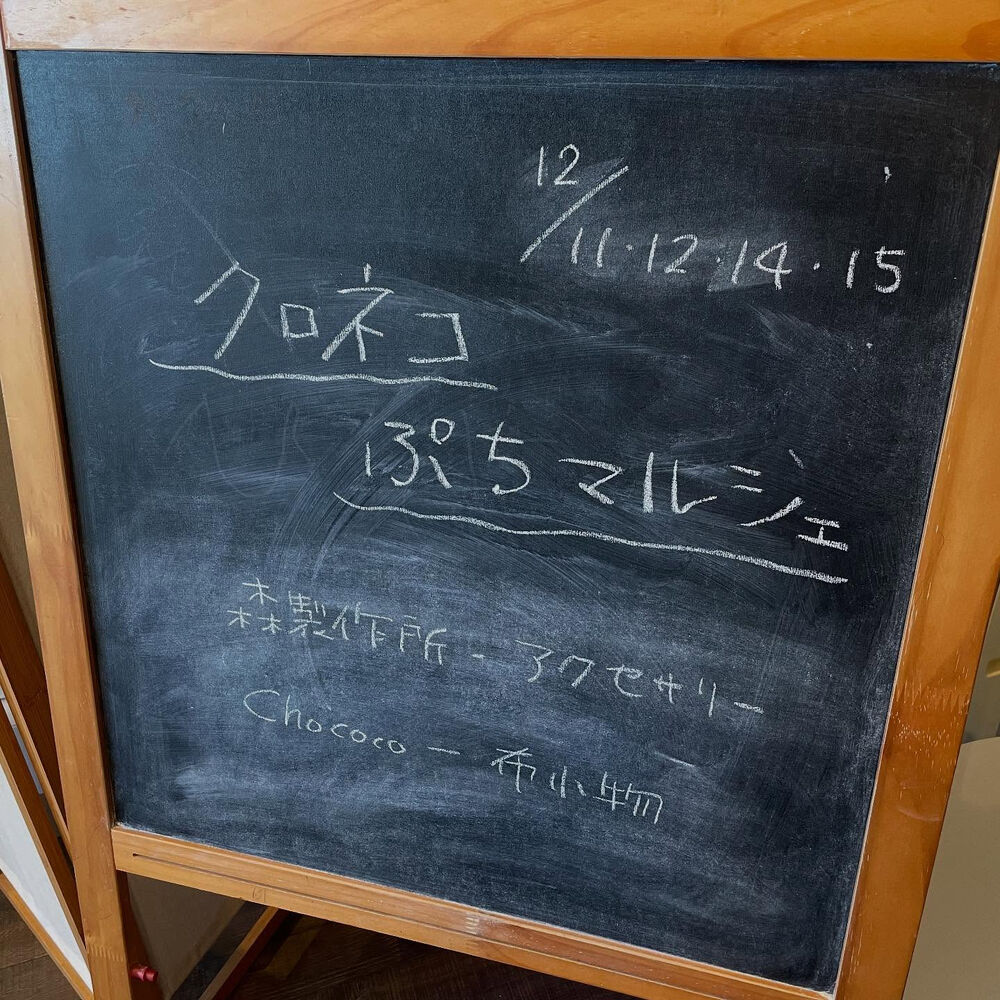 12/11・12・14・15
クロネコ
ぷちマルシェ
森製作所 - アクセサリー
Chococo - 布小物